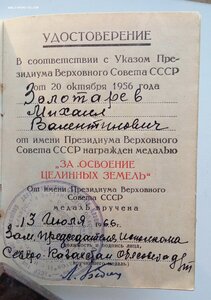 УДОСТОВЕРЕНИЕ
В соответствии с Указом Пре-
зидиума Верховного Совета СССР
от 20 октября 1956 года
Золотарев
Михаил
Валентинович
от имени Президиума Верховного
Совета СССР награжден медалью
"ЗА ОСВОЕНИЕ
ЦЕЛИННЫХ ЗЕМЕЛЬ"
От имени Президиума Верховного
Совета СССР
медаль вручена
13 июля 1966 г.
Зам. председателя исполкома
Северо-Казахстан